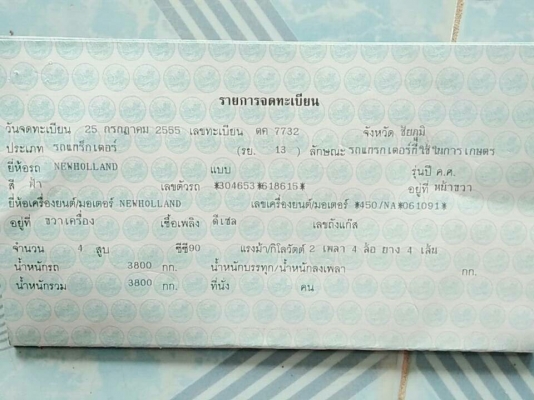 รายการจดทะเบียน
วันจดทะเบียน 25 กรกฎาคม 2555 เลขทะเบียน ตค 7732 จังหวัด ชัยภูมิ
ประเภท รถแทร็กเตอร์ (รย. 13 ) ลักษณะ รถแทรกเตอร์ที่ใช้ในการเกษตร
ยี่ห้อรถ NEWHOLLAND แบบ รุ่นปี ค.ศ.
สี ฟ้า เลขตัวรถ *304653*618615* อยู่ที่ หน้าขวา
ยี่ห้อเครื่องยนต์/มอเตอร์ NEWHOLLAND เลขเครื่องยนต์/มอเตอร์ *450/NA*061091*
อยู่ที่ ขวาเครื่อง เชื้อเพลิง ดีเซล เลขถังแก๊ส
จำนวน 4 สูบ ซีซี 90 แรงม้า/กิโลวัตต์ 2 เพลา 4 ล้อ ยาง 4 เส้น
น้ำหนักรถ 3800 กก. น้ำหนักบรรทุก/น้ำหนักลงเพลา กก.
น้ำหนักรวม 3800 กก. ที่นั่ง คน